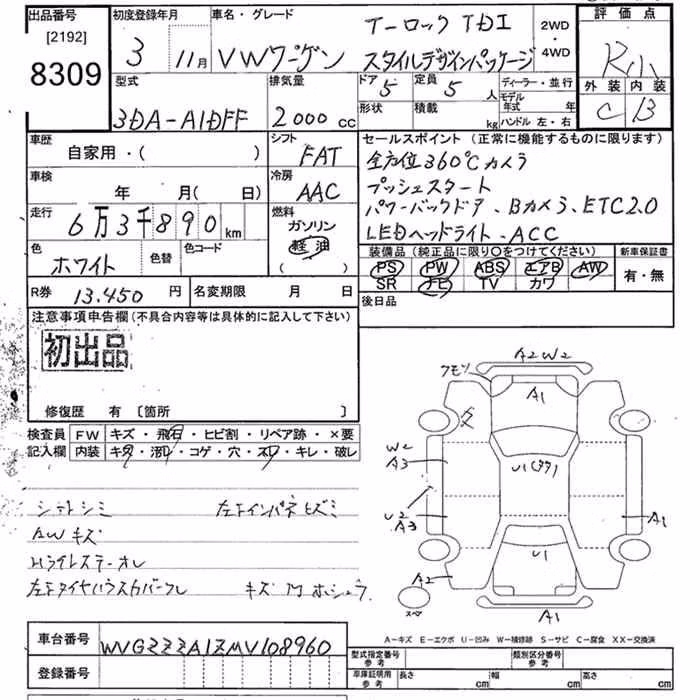 出品番号 初度登録年月 車名・グレード 評価点
[2192]
8309
3 11月 VWワーゲン T-ロック TDI 2WD・4WD R小
スタイルデザインパッケージ
外装 内装
C B
型式 排気量 ドア 定員 ディーラー・並行
3DA-A1DFF 2000cc 5 5人 モデル年式 年
形状 積載 kg ハンドル 左・右
車歴 シフト セールスポイント (正常に機能するものに限ります)
自家用・( ) FAT 全方位360℃カメラ
車検 冷房 プッシュスタート
年 月( 日) AAC パワーバックドア、Bカメラ、ETC2.0
走行 燃料 LEDヘッドライト、ACC
6万3千890km ガソリン
軽油
( )
色 色替 色コード
ホワイト
装備品 (純正品に限り○をつけてください) 新車保証書
PS PW ABS エアB AW 有・無
SR ナビ TV カワ
R券 13.450円 名変期限 月 日
後日品
注意事項申告欄(不具合内容等は具体的に記入して下さい)
初出品
修復歴 有 [箇所 ]
検査員 FW キズ・飛石・ヒビ割・リペア跡・×要
記入欄 内装 キズ・汚レ・コゲ・穴・スレ・キレ・破レ
シートシミ 左下インパネヒズミ
AWキズ
キズ
A2 W2
A1
W2
A3
U2
A3
U1
A1
U1
A2
A1
A-キズ E-エクボ U-凹み W-補修跡 S-サビ C-腐食 XX-交換済
車台番号 WVGZZZA1ZMV108960
登録番号
型式指定番号 参考 類別区分番号 参考
車庫証明用 参考 長さ cm 幅 cm 高さ cm